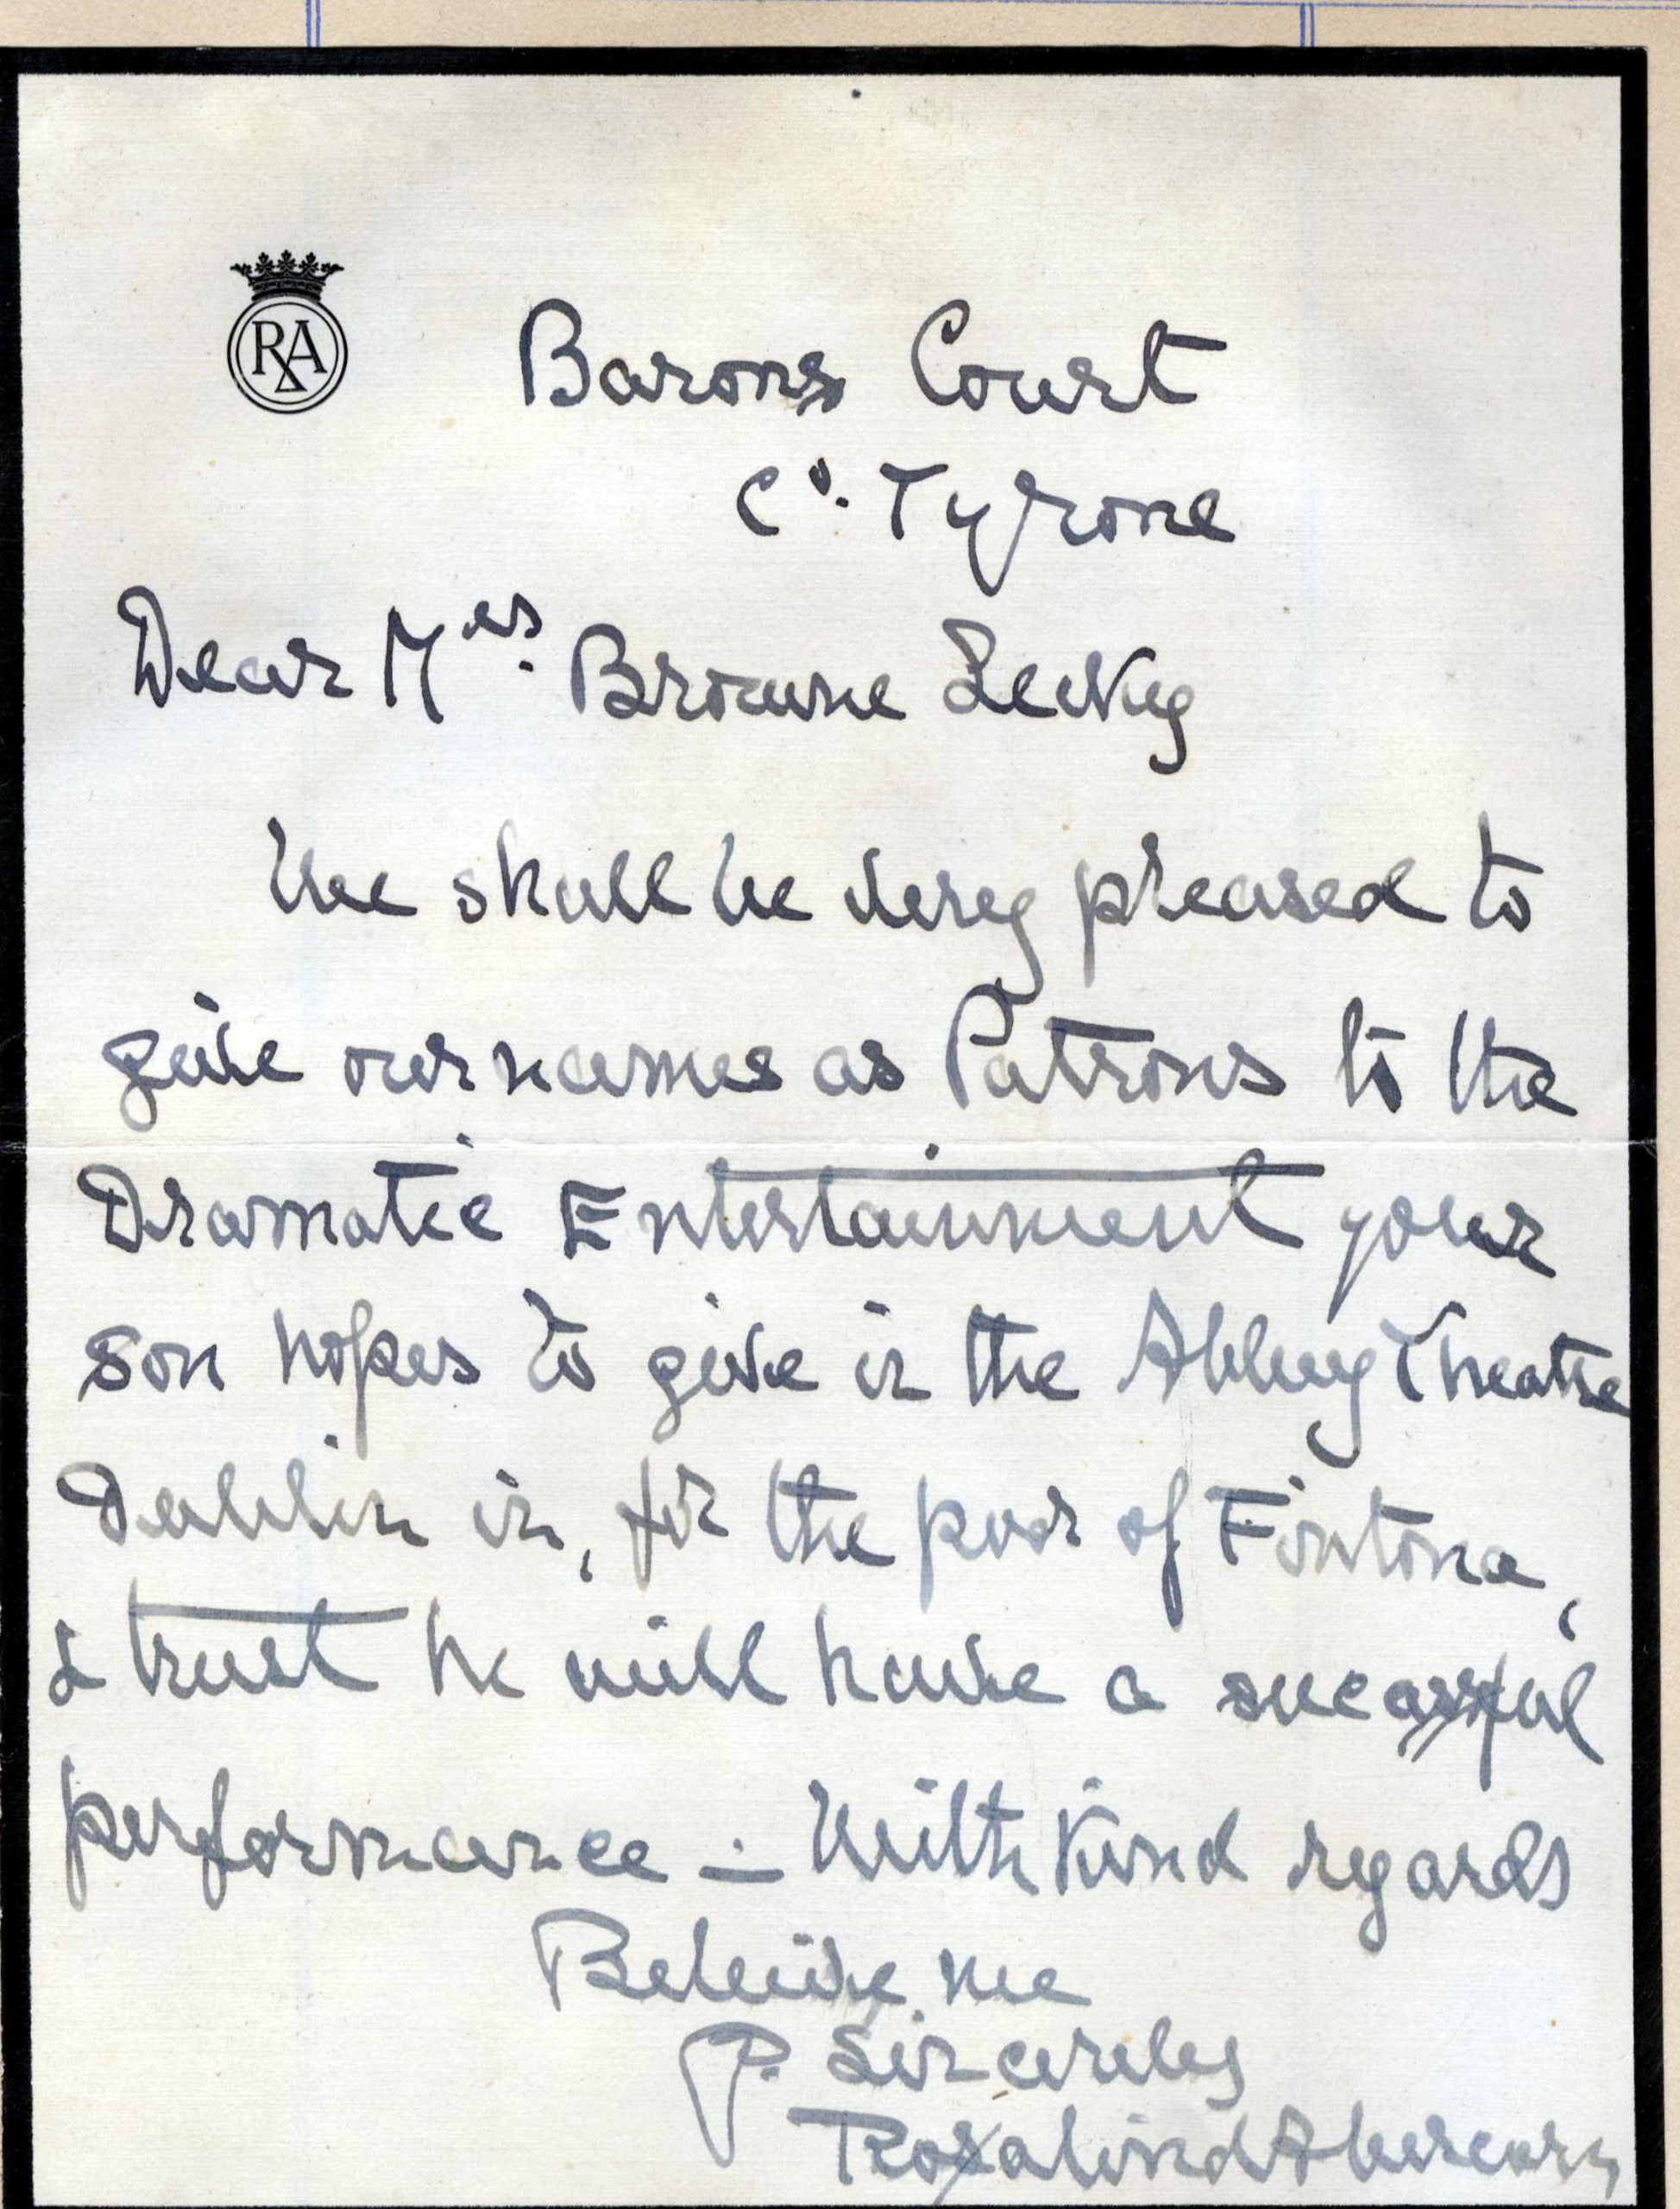 RA
Barons Court
Co. Tyrone
Dear Mrs. Browne Lecky
We shall be very pleased to
give our names as Patrons to the
Dramatic Entertainment your
son hopes to give in the Abbey Theatre
Dublin in, for the poor of Fintona,
& trust he will have a sucessful
performance – With kind regards
Beleive me
Y. Sincerely
Rosalind Abercorn